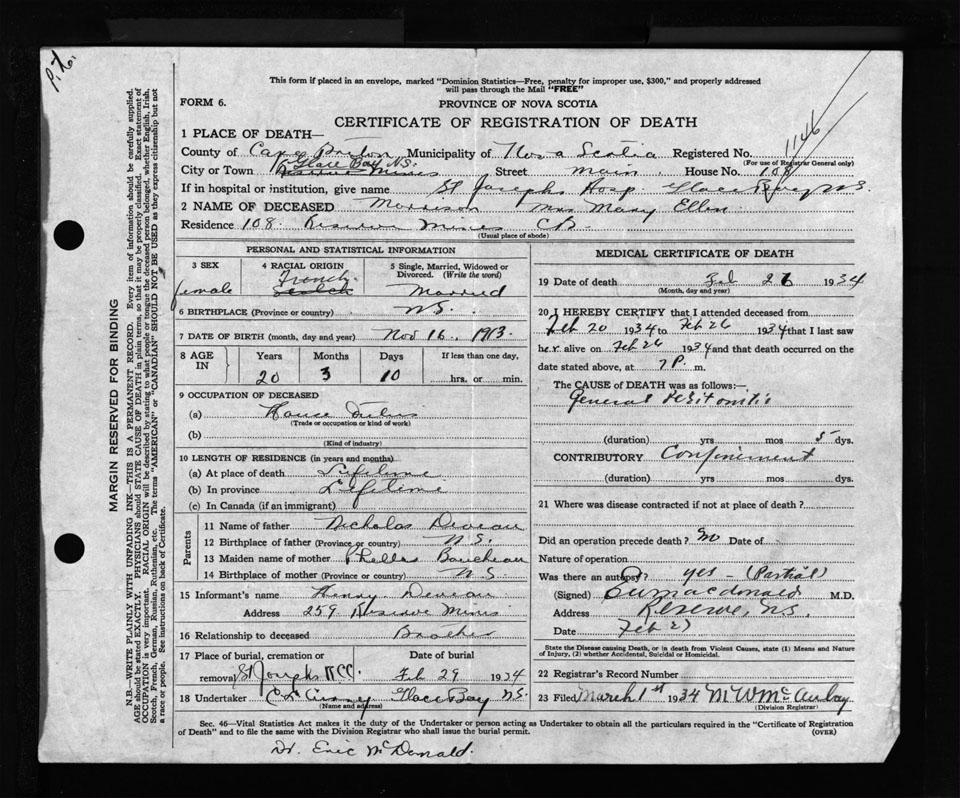 P.X.
This form if placed in an envelope, marked "Dominion Statistics—Free, penalty for improper use, $300," and properly addressed
will pass through the Mail "FREE"
FORM 6.
PROVINCE OF NOVA SCOTIA
CERTIFICATE OF REGISTRATION OF DEATH
1146
1 PLACE OF DEATH—
County of Cape Breton Municipality of Nova Scotia Registered No.
(For use of Registrar General only)
City or Town Glace Bay N.S. Reserve Mines Street main House No. 108
If in hospital or institution, give name St Josephs Hosp. Glace Bay N.S.
2 NAME OF DECEASED Morrison Mrs Mary Ellen
Residence 108 Reserve Mines CB.
(Usual place of abode)
PERSONAL AND STATISTICAL INFORMATION
3 SEX female
4 RACIAL ORIGIN French Scotch
5 Single, Married, Widowed or Divorced. (Write the word) Married
6 BIRTHPLACE (Province or country) N.S.
7 DATE OF BIRTH (month, day and year) Nov 16, 1913.
8 AGE IN Years 20 Months 3 Days 10 If less than one day, hrs. or min.
9 OCCUPATION OF DECEASED
(a) House
(Trade or occupation or kind of work)
(b)
(Kind of industry)
10 LENGTH OF RESIDENCE (in years and months)
(a) At place of death Lifetime
(b) In province Lifetime
(c) In Canada (if an immigrant)
Parents
11 Name of father Nicholas Deveau
12 Birthplace of father (Province or country) N.S.
13 Maiden name of mother
14 Birthplace of mother (Province or country) N.S.
15 Informant's name Henry Deveau
Address 259 Reserve Mines
16 Relationship to deceased Brother
17 Place of burial, cremation or removal St Josephs RCC. Date of burial Feb 29 1934
18 Undertaker Glace Bay N.S.
(Name and address)
MEDICAL CERTIFICATE OF DEATH
19 Date of death Feb 26 1934
(Month, day and year)
20 I HEREBY CERTIFY that I attended deceased from
Feb 20 1934 to Feb 26 1934 that I last saw
her alive on Feb 26 1934 and that death occurred on the
date stated above, at 7 P. m.
The CAUSE OF DEATH was as follows:—
General Peritonitis
(duration) yrs mos 5 dys.
CONTRIBUTORY Confinement
(duration) yrs mos dys.
21 Where was disease contracted if not at place of death?
Did an operation precede death? No Date of
Nature of operation
Was there an autopsy? yes - (Partial)
(Signed) E macdonald M.D.
Address Reserve, N.S.
Date Feb 27
State the Disease causing Death, or in death from Violent Causes, state (1) Means and Nature
of Injury, (2) whether Accidental, Suicidal or Homicidal.
22 Registrar's Record Number
23 Filed March 1st 1934 M W McAulay
(Division Registrar)
Sec. 46—Vital Statistics Act makes it the duty of the Undertaker or person acting as Undertaker to obtain all the particulars required in the "Certificate of Registration
of Death" and to file the same with the Division Registrar who shall issue the burial permit.
(OVER)
Dr. Eric McDonald.
MARGIN RESERVED FOR BINDING
N.B.—WRITE PLAINLY WITH UNFADING INK—THIS IS A PERMANENT RECORD. Every item of information should be carefully supplied.
AGE should be stated EXACTLY. PHYSICIANS should STATE CAUSE OF DEATH in plain terms, so that it may be properly classified. Exact statement of
OCCUPATION is very important. RACIAL ORIGIN will be described by stating to what people or tongue the deceased person belonged, whether English, Irish,
Scotch, French, German, Russian, Ruthenian, etc. The terms "AMERICAN" or "CANADIAN" SHOULD NOT BE USED as they express citizenship but not
a race or people. See instructions on back of Certificate.